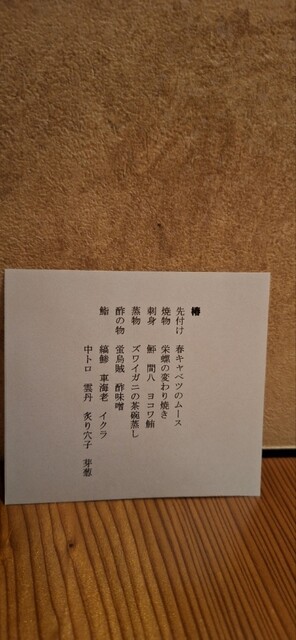 椿
先付け 春キャベツのムース
焼物 栄螺の変わり焼き
刺身 鯵 間八 ヨコワ鮪
蒸物 ズワイガニの茶碗蒸し
酢の物 蛍烏賊 酢味噌
鮨 縞鯵 車海老 イクラ
中トロ 雲丹 炙り穴子 芽葱